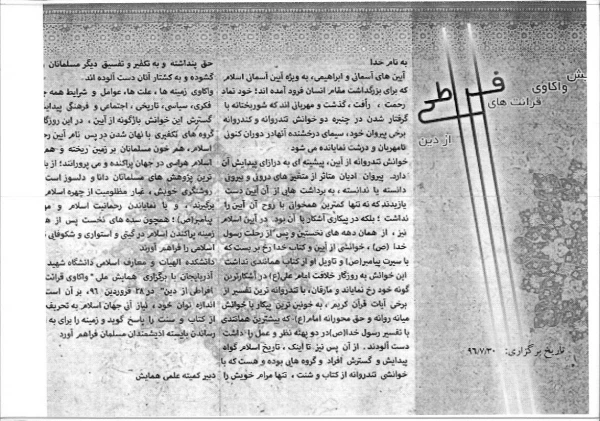 ش
واکاوی
افراطی
قرائت های
از دین
تاریخ برگزاری: ۹۶/۷/۳۰
به نام خدا
آیین های آسمانی و ابراهیمی، به ویژه آیین آسمانی اسلام
که برای بزرگداشت مقام انسان فرود آمده اند؛ خود نماد
رحمت ، رأفت ، گذشت و مهربانی اند که شوربختانه با
گرفتار شدن در چنبره دو خوانش تندروانه و کندروانه
برخی پیروان خود، سیمای درخشنده آنهادر دوران کنونی
نامهربان و درشت نمایانده می شود
خوانش تندروانه از آیین، پیشینه ای به درازای پیدایش آن
دارد. پیروان ادیان متاثر از متغیر های درونی و بیرونی
دانسته یا ندانسته ، به برداشت هایی از آن آیین دست
یازیدند که نه تنها کمترین همخوانی با روح آن آیین را
نداشت ؛ بلکه در پیکاری آشکار با آن بود. در آیین اسلام
نیز ، از همان دهه های نخستین و پس از رحلت رسول
خدا (ص) ، خوانشی از آیین و کتاب خدا رخ بر بست که
با سیرت پیامبر(ص) و تاویل او از کتاب همانندی نداشت
این خوانش به روزگار خلافت امام علی(ع) در آشکارترین
گونه خود رخ نمایاند و مارقان، با تندروانه ترین تفسیر از
برخی آیات قرآن کریم ، به خونین ترین پیکار با خوانش
میانه روانه و حق محورانه امام(ع)- که بیشترین همانندی
با تفسیر رسول خدا(ص)در دو پهنه نظر و عمل را داشت
دست آلودند. . از آن پس نیز تا اینک ، تاریخ اسلام گواه
پیدایش و گسترش افراد و گروه هایی بوده و هست که با
خوانشی تندروانه از کتاب و سنت ، تنها مرام خویش را
حق پنداشته و به تکفیر و تفسیق دیگر مسلمانان
گشوده و به کشتار آنان دست آلوده اند.
واکاوی زمینه ها ، علت ها، عوامل و شرایط همه
فکری، سیاسی، تاریخی ، اجتماعی و فرهنگی پیدایش
گسترش این خوانش بازگونه از آیین ، در این روزگار
گروه های تکفیری با نهان شدن در پس نام آیین
اسلام، هم خون مسلمانان بر زمین ریخته و هم
اسلام هراسی در جهان پراکنده و می پرورانند؛ از
ترین پژوهش های مسلمانان دانا و دلسوز است
روشنگری خویش ، غبار مظلومیت از چهره اسلام
برگیرند ، و با نمایاندن رحمانیت اسلام و
پیامبر(ص) ؛ همچون سده های نخست پس از
زمینه پراکندن اسلام در گیتی و استواری و شکوفایی
اسلامی را فراهم آورند
دانشکده الهیات و معارف اسلامی دانشگاه شهید
آذربایجان با برگزاری همایش ملی "واکاوی قرائت
افراطی از دین" در ۲۸ فروردین ۹۶، بر آن است
اندازه توان خود ، نیاز آنی جهان اسلام به تحریف
از کتاب و سنت را پاسخ گوید و زمینه را برای به
رساندن بایسته اندیشمندان مسلمان فراهم آورد
دبیر کمیته علمی همایش